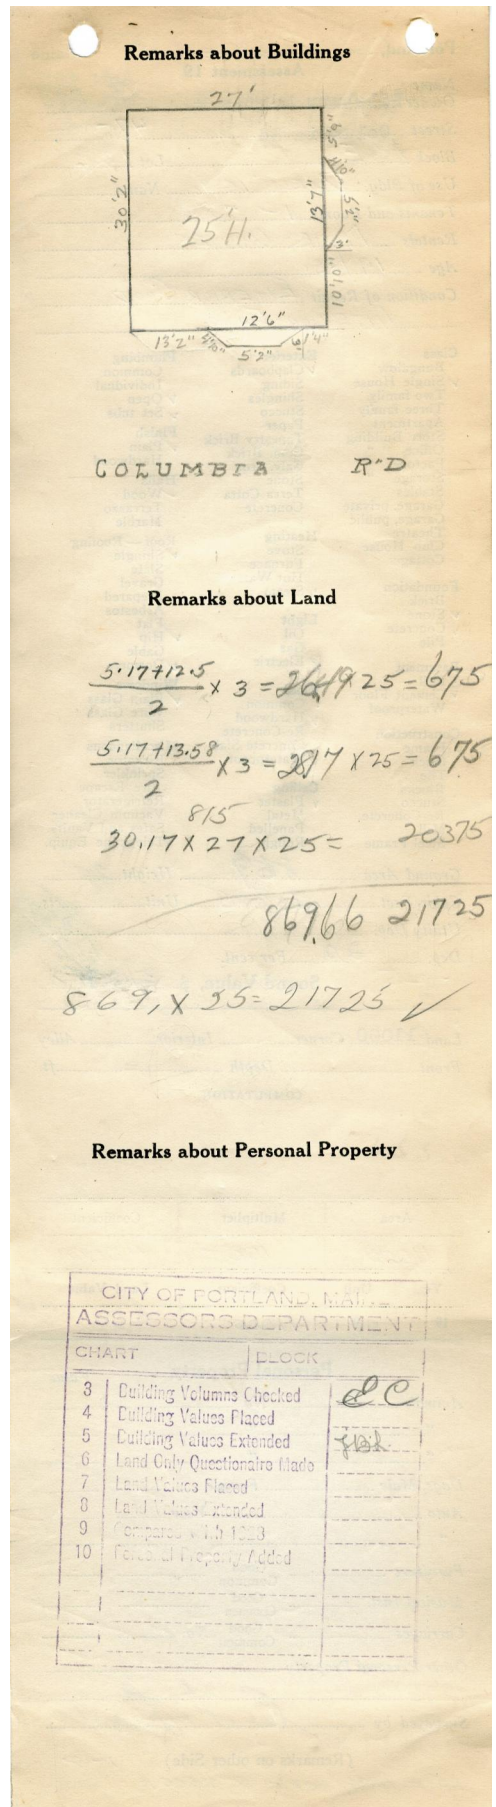 Remarks about Buildings
27'
30'2"
25'H.
5'9"
13'7"
5'2"
3'
10'10"
12'6"
13'2"
5'2"
1'4"
COLUMBIA R"D
Remarks about Land
5.17+12.5
2
x 3 = 26.49 x 25 = 675
5.17+13.58
2
x 3 = 2817 x 25 = 675
815
30.17 x 27 x 25 = 20375
869.66 21725
869, x 25 = 21725 ✓
Remarks about Personal Property
CITY OF PORTLAND, MAINE
ASSESSORS DEPARTMENT
CHART BLOCK
3 Building Volumns Checked
4 Building Values Placed
5 Building Values Extended
6 Land Only Questionaire Made
7 Land Values Placed
8 Land Values Extended
9 Compared With 1923
10 Personal Property Added